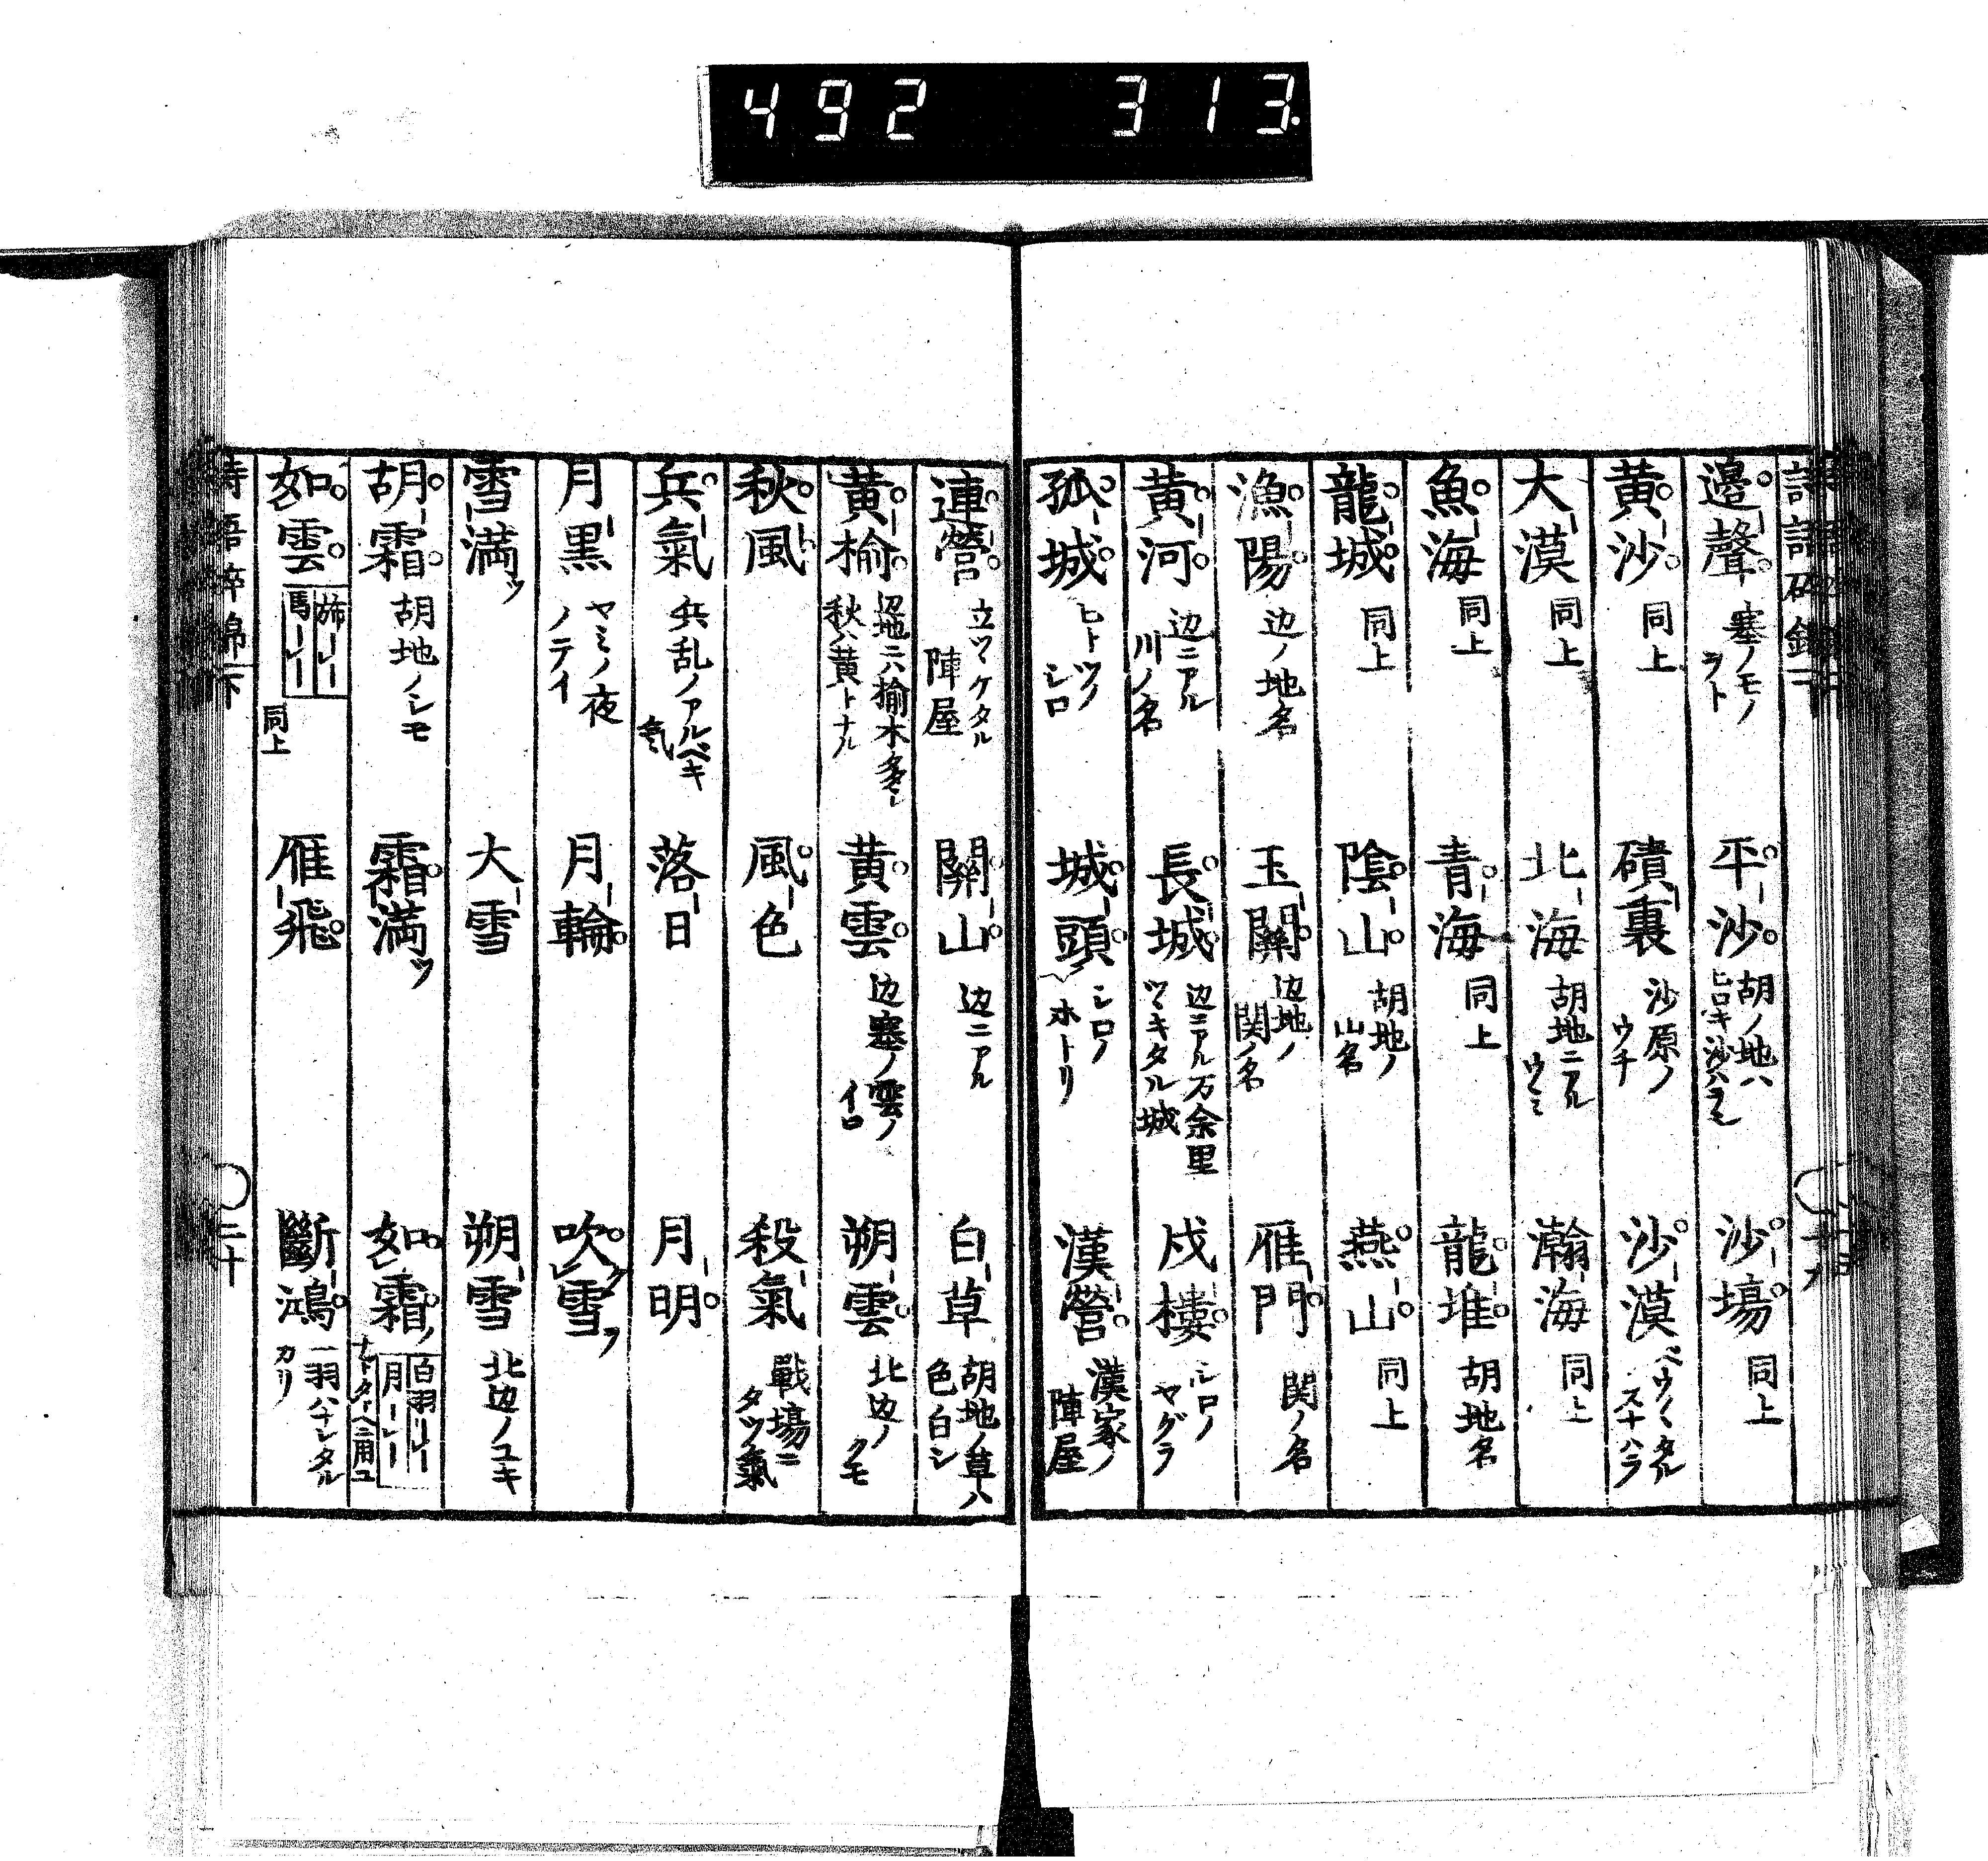 492 313.
邊聲 塞ノモノヲト 平沙 胡ノ地ハヒロキ沙ハラ 沙場 同上
黄沙 同上 磧裏 沙原ノウチ 沙漠 バウ〱タルスナハラ
大漠 同上 北海 胡地ニアルウミ 瀚海 同上
魚海 同上 青海 同上 龍堆 胡地名
龍城 同上 陰山 胡地ノ山名 燕山 同上
漁陽 辺ノ地名 玉關 辺地ノ関ノ名 雁門 関ノ名
黄河 辺ニアル川ノ名 長城 辺ニアル万余里ツヾキタル城 戍樓 シロノヤグラ
孤城 ヒトツノシロ 城頭 シロノホトリ 漢營 漢家ノ陣屋
連營 立ツヾケタル陣屋 關山 辺ニアル 白草 胡地ノ草ハ色白シ
黄榆 辺地ニハ榆木多シ秋ハ黄トナル 黄雲 辺塞ノ雲ノイロ 朔雲 北辺ノクモ
秋風 風色 殺氣 戰場ニタツ氣
兵氣 兵乱ノアルベキ氣 落日 月明
月黒 ヤミノ夜ノテイ 月輪 吹雪フ
雪満ツ 大雪 朔雪 北辺ノユキ
胡霜 胡地ノシモ 霜満ツ 如霜ノ 白羽ーレー 月ーレー ナドタトヘニ用ユ
如雲 旆ーレー 馬ーレー 同上 雁飛 斷鴻 一羽ハナレタルカリ
二十